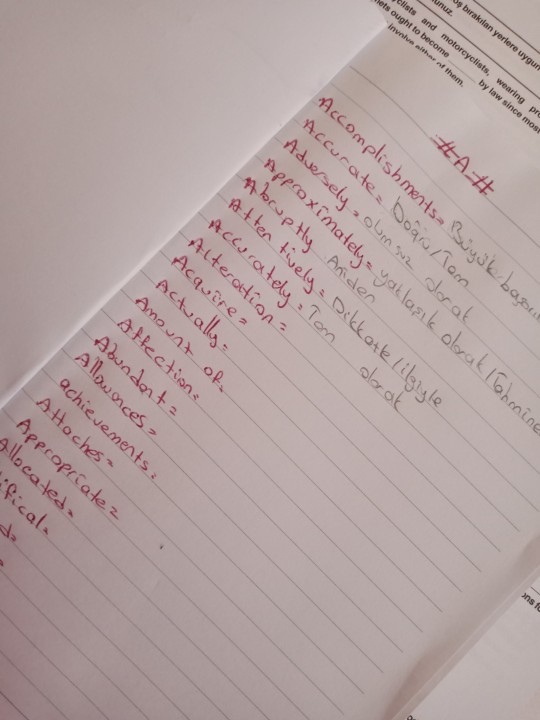 oş bırakılan yerlere uygun
unuz.
clists and motorcyclists, wearing pro
nets ought to become ____ by law since most
involve either of them.
#A#
Accomplishments= Büyük başarı
Accurate= Doğru/Tam
Adversely= olumsuz olarak
Approximately= yaklaşık olarak/Tahmine
Abruptly Aniden
Attentively= Dikkate/ilgiyle
olarak
Accurately= Tam
Alteration=
Acquire=
Actually=
Amount of=
Affection=
Abundant=
Allowances=
achievements=
Attaches=
Appropriate=
Allocated=
ifical=